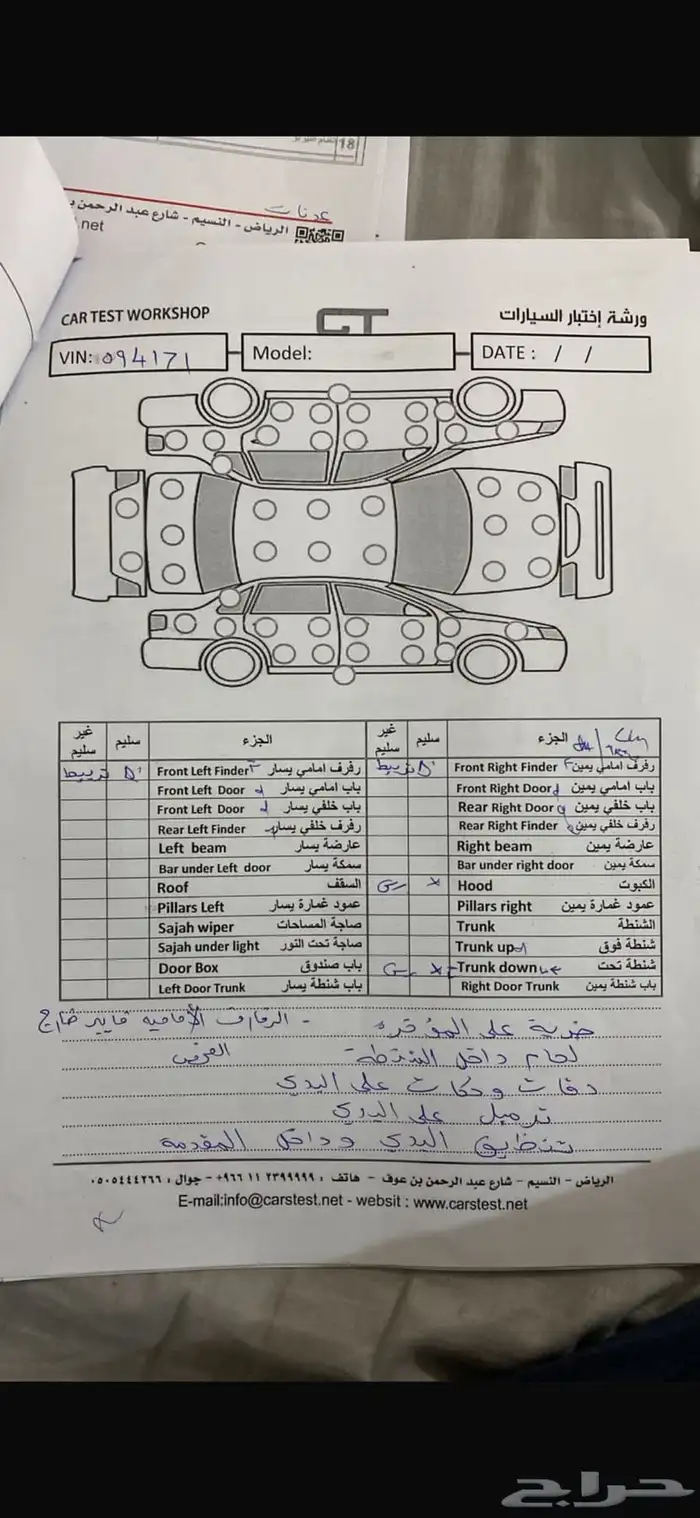 18
عدنات
الرياض - النسيم - شارع عبد الرحمن ب
.net
CAR TEST WORKSHOP
ورشة إختبار السيارات
VIN: 094171
Model:
DATE : / /
غير سليم سليم الجزء غير سليم سليم الجزء
تربيط Front Left Finder رفرف امامي يسار تربيط Front Right Finder رفرف امامي يمين
Front Left Door باب امامي يسار Front Right Door باب امامي يمين
Front Left Door باب خلفي يسار Rear Right Door باب خلفي يمين
Rear Left Finder رفرف خلفي يسار Rear Right Finder رفرف خلفي يمين
Left beam عارضة يسار Right beam عارضة يمين
Bar under Left door سمكة يسار Bar under right door سمكة يمين
Roof السقف رش x Hood الكبوت
Pillars Left عمود غمارة يسار Pillars right عمود غمارة يمين
Sajah wiper صاجة المساحات Trunk الشنطة
Sajah under light صاجة تحت النور Trunk up شنطة فوق
Door Box باب صندوق x Trunk down شنطة تحت
Left Door Trunk باب شنطة يسار Right Door Trunk باب شنطة يمين
ضربة على المؤخرة - الرفارف الأمامية فايبر خارج
لحام داخل الشنطة الفحص
دقات وحكات على البدي
ترميل على البدي
تنظيف البدي وداخل المقدمة
الرياض - النسيم - شارع عبد الرحمن بن عوف - هاتف : ٢٣٩٩٩٩٩ ١١ ٩٦٦+ - جوال : ٠٥٠٥٤٤٤٢٦٦
E-mail:info@carstest.net - websit : www.carstest.net
حراج